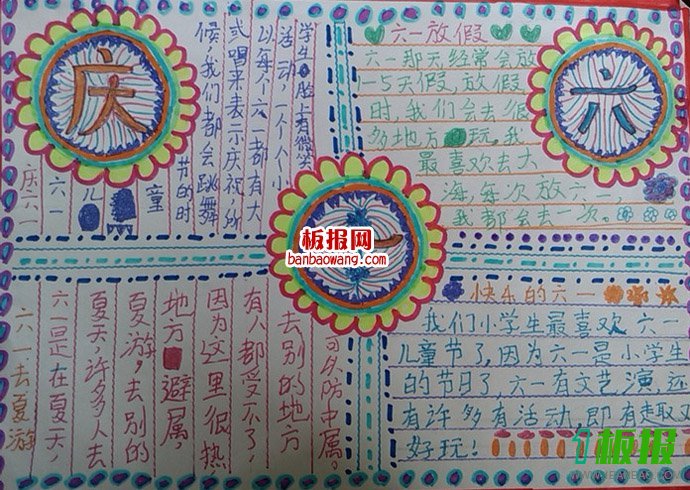 庆
六
一
六一放假
六一那天经常会放
一5天假,放假
时,我们会去很
多地方玩,我
最喜欢去大
海,每次放六一,
我都会去一次。
庆六一
六一儿童
节的时
候,我们都会跳舞
或唱来表示庆祝,所
以每个六一都有大
活动,一个个小小
学生脸上有微笑
六一去夏游
六一是在夏天,
夏天,许多人去
夏游,去别的
地方避属,
因为这里很热
有人都受不了,
去别的地方
可以防中属。
快乐的六一
我们小学生最喜欢六一
儿童节了,因为六一是小学生
的节日了,六一有文艺演,还
有许多有活动,即有走取又
好玩!
板报网
banbaowang.com
板报